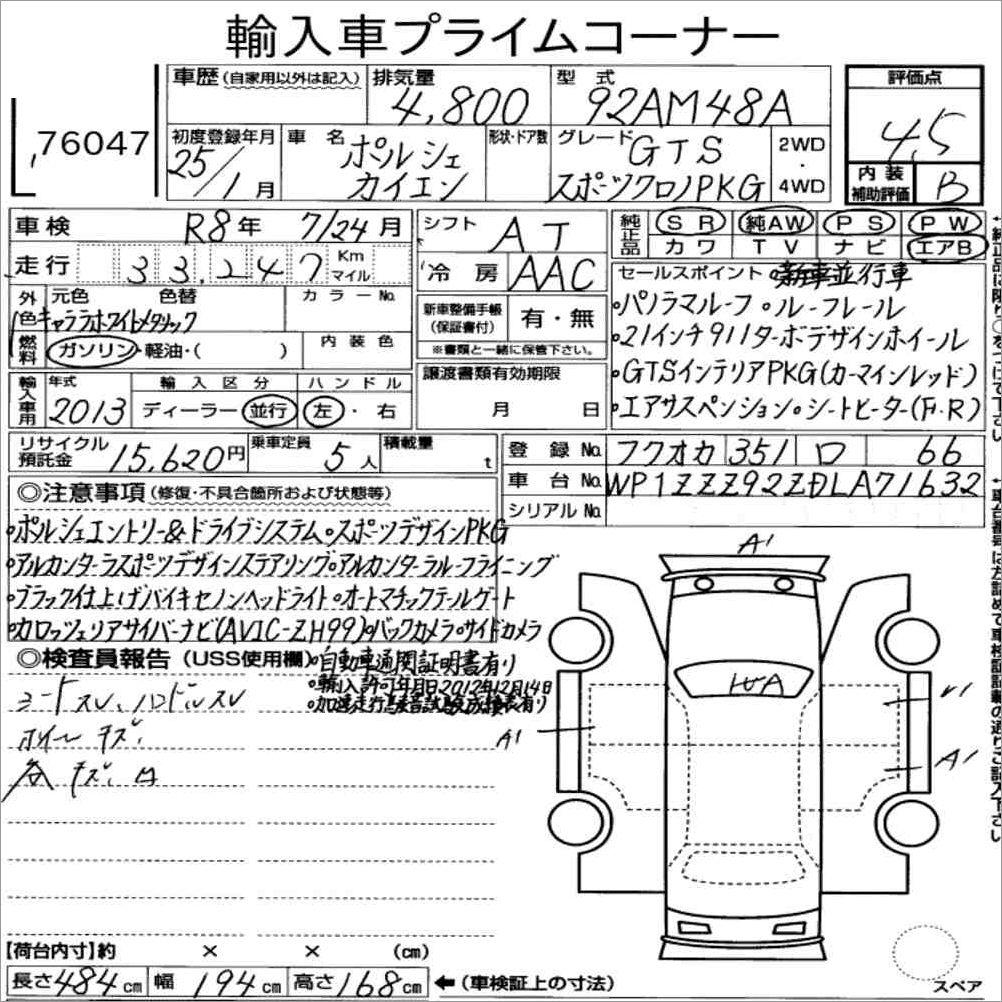 輸入車プライムコーナー
76047
車歴 (自家用以外は記入) 排気量 4,800 型式 92AM48A 評価点 4.5
初度登録年月 25/1月 車名 ポルシェ カイエン 形状・ドア数 グレード GTS スポーツクロノPKG 2WD・4WD 内装補助評価 B
車検 R8年 7/24月 シフト AT 純正品 SR 純AW PS PW
カワ TV ナビ エアB
走行 33,247 Km マイル 冷房 AAC
外色 元色 色替 カラーNo.
キャララホワイトメタリック
燃料 ガソリン・軽油・( ) 内装色
新車整備手帳 (保証書付) 有・無
※書類と一緒に保管下さい。
輸入車用 年式 2013 輸入区分 ディーラー・並行 ハンドル 左・右
譲渡書類有効期限 月 日
セールスポイント 。新車並行車
。パノラマルーフ 。ルーフレール
。21インチ911ターボデザインホイール
。GTSインテリアPKG(カーマインレッド)
。エアサスペンション。シートヒーター(F・R)
リサイクル預託金 15,620円 乗車定員 5人 積載量 t
登録No. フクオカ 351 ロ 66
車台No. WP1ZZZ92ZDLA71632
シリアルNo.
◎注意事項 (修復・不具合箇所および状態等)
。ポルシェエントリー&ドライブシステム。スポーツデザインPKG
。アルカンターラスポーツデザインステアリング。アルカンターラルーフライニング
。ブラック仕上げバイキセノンヘッドライト。オートマチックテールゲート
。カロッツェリアサイバーナビ(AVIC-ZH99)。バックカメラ。サイドカメラ
◎検査員報告 (USS使用欄)
。自動車通関証明書有り
。輸入許可年月日2012年12月14日
シートスレ、ハンドルスレ
ホイールキズ、
A1
WA
A1
A1
【荷台内寸】約 × × (cm)
長さ484cm 幅194cm 高さ168cm ←(車検証上の寸法)
スペア